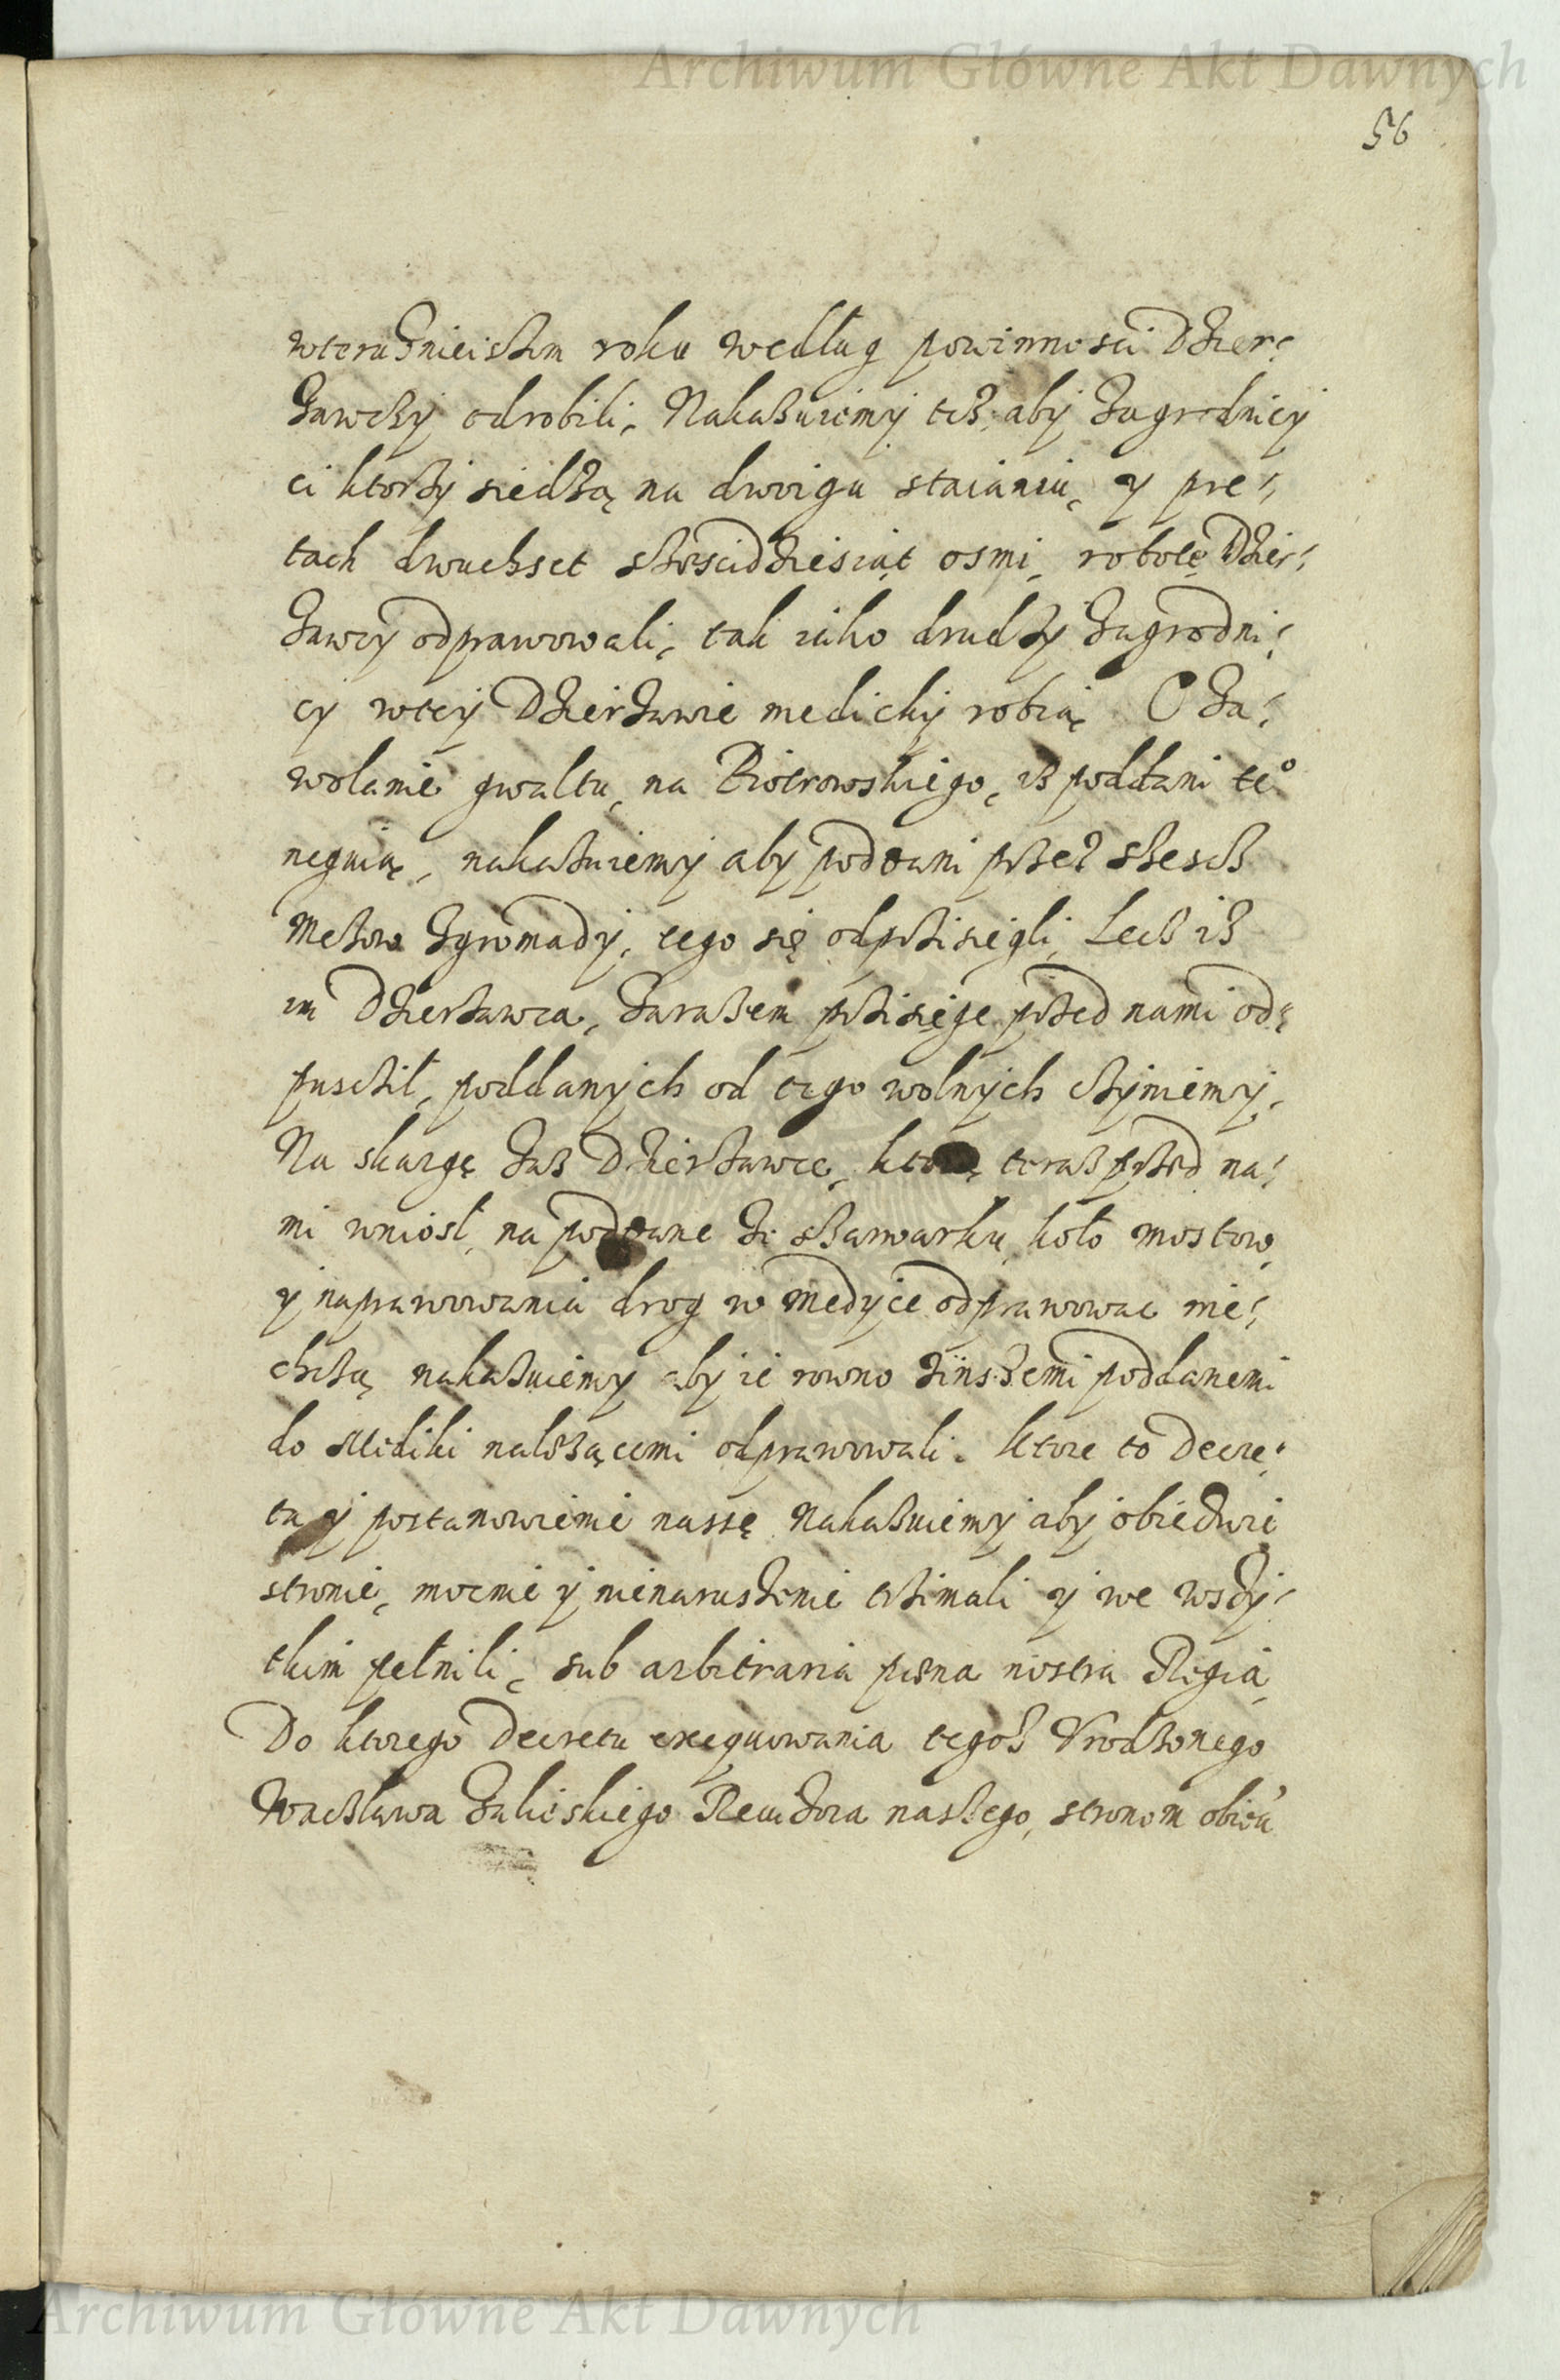 Archiwum Główne Akt Dawnych
56
wteraznieiszim roku według powinnosci Dzier-
zawczÿ odrobili, Nakazuiemÿ tez, abÿ zagrodnicÿ
ci ktorzÿ siedzą na dwoigu staianiu, y prę-
tach dwuchset szescidziesiąt osmi, robotę Dzier-
zawcÿ odprawowali, tak iako drudzÿ zagrodni-
cÿ wteÿ Dzierzawie medickiÿ robią O za-
wolanie gwaltu, na Piotrowskiego, iz poddani te°
neguią, nakazuiemy aby poddani przez szescz
Mezow zgromadÿ, tego się odprzisiegli, Lecz iz
im Dzierzawca, zarazem przisięge przed nami od-
puscził, poddanÿch od tego wolnÿch czÿniemÿ,
Na skargę zas Dzierzawce, ktorą teraz przed na-
mi wniosł, na poddane ze szarwarku, koło mostow,
y naprawowania drog w Medÿce odprawowac nie-
chczą, nakazuiemy aby ie rowno zinszemi poddanemi
do Mediki nalezącemi odprawowali. Ktore to Decre-
ta ÿ postanowienie nasze Nakazuiemÿ abÿ obiedwie
stronie, mocnie ÿ nienaruszenie trzimali ÿ we wszÿ-
tkim pełnili, sub arbitraria pæna nostra Regia,
Do ktorego Decretu exequowania tegoz Vrodzonego
Waczława Zaliеskiego Rewizora naszego, stronom obiéu
Archiwum Główne Akt Dawnych